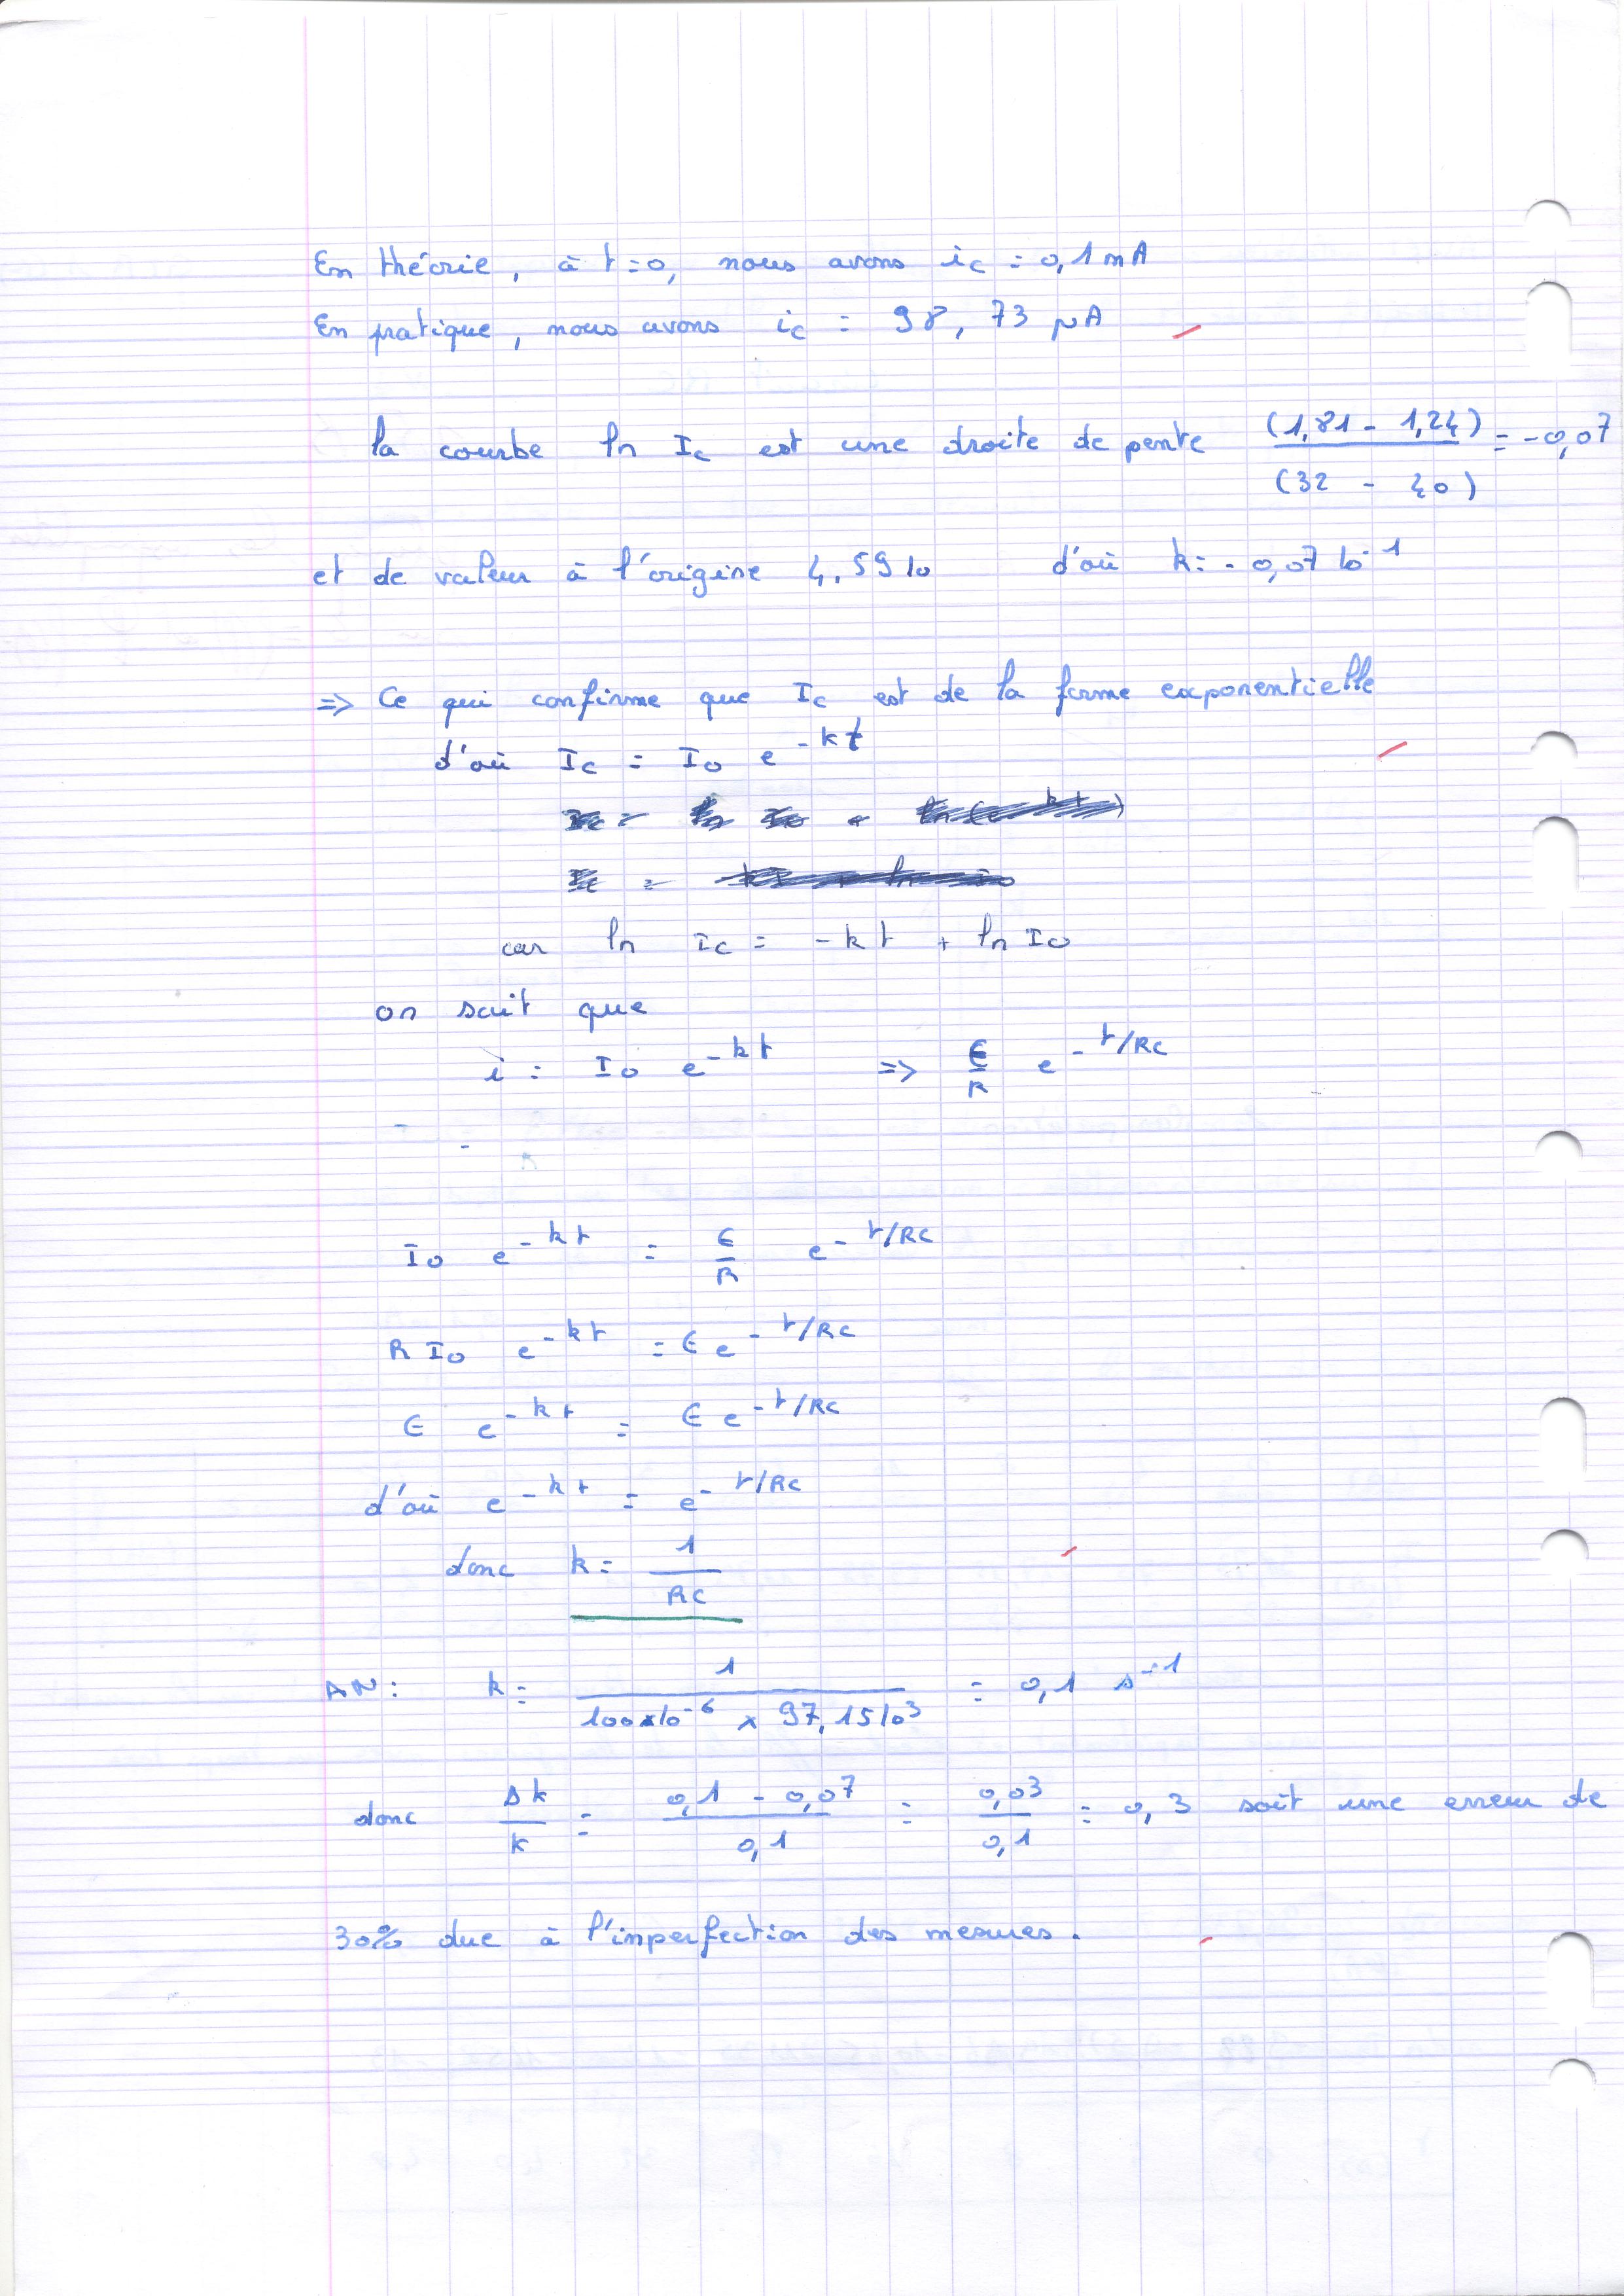 En théorie, à t=0, nous avons ic = 0,1 mA
En pratique, nous avons ic = 98,73 µA
la courbe ln Ic est une droite de pente (1,81 - 1,24) / (32 - 40) = -0,07
et de valeur à l'origine 4,59 10 d'où k = - 0,07 10^-1
=> Ce qui confirme que Ic est de la forme exponentielle
d'où Ic = I0 e^-kt
car ln Ic = -kt + ln I0
on sait que
i = I0 e^-kt => E/R e^-t/RC
I0 e^-kt = E/R e^-t/RC
R I0 e^-kt = E e^-t/RC
E e^-kt = E e^-t/RC
d'où e^-kt = e^-t/RC
donc k = 1/RC
AN : k = 1 / (100x10^-6 x 97,15 10^3) = 0,1 s^-1
donc Δk/k = (0,1 - 0,07)/0,1 = 0,03/0,1 = 0,3 soit une erreur de
30% due à l'imperfection des mesures.